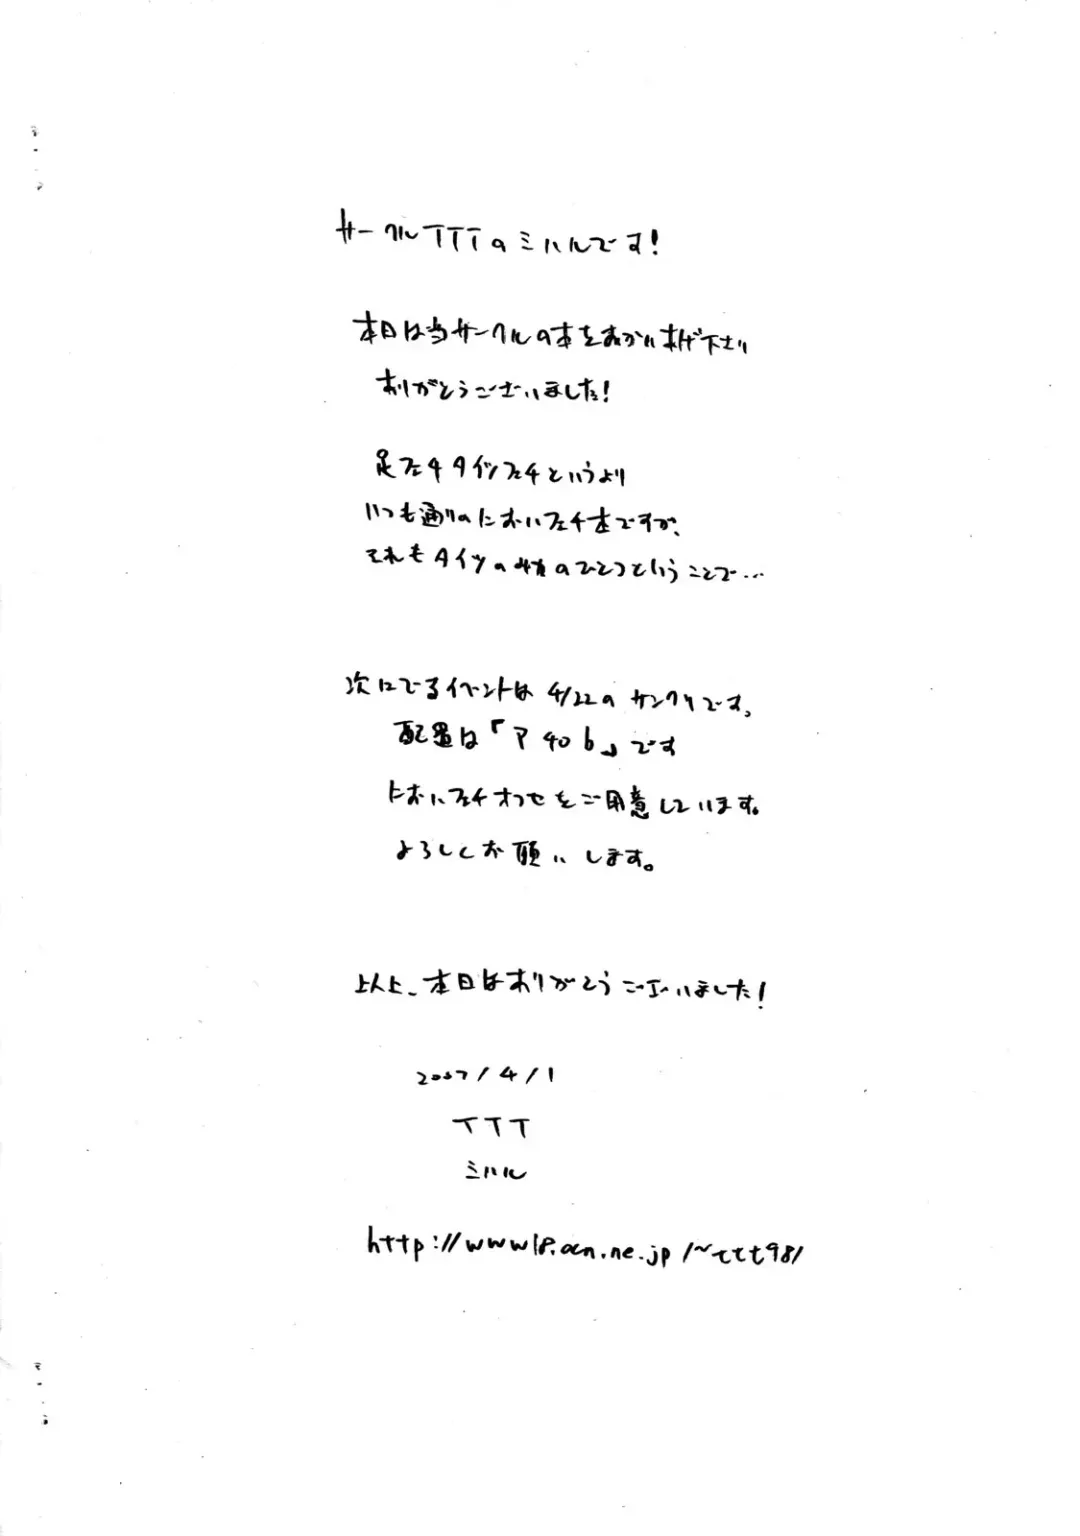 サークルTTTのミハルです!
本日は当サークルの本をお買い上げ下さり
ありがとうございました!
足フェチタイツフェチというより
いつも通りのにおいフェチ本ですが、
それもタイツの味のひとつということで…
次にでるイベントは4/22のサンクリです。
配置は「ア40b」です
においフェチオフセをご用意しています。
よろしくお願いします。
以上、本日はありがとうございました!
2007/4/1
TTT
ミハル
http://www18.ocn.ne.jp/~ttt981